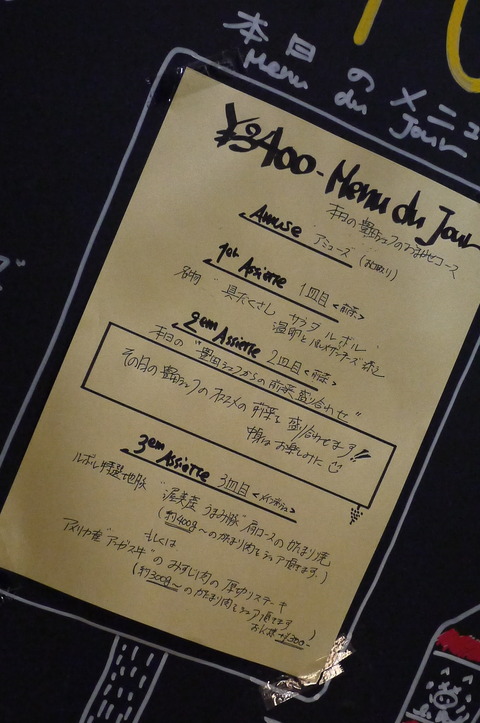 本日のメニュ
Menu du Jour
¥3400- Menu du Jour
本日の豊田シェフのおまかせコース
Amuse "アミューズ" (お肉入り)
1er Assiette 1皿目 <前菜>
名物 "具だくさん サラダ ルボル"
温卵とパルメザンチーズ添え
2em Assiette 2皿目 <前菜>
本日の "豊田シェフからの前菜盛り合わせ"
その日の豊田シェフのオススメの前菜を盛り合わせます!!
中身はお楽しみに
3em Assiette 3皿目 <メインディッシュ>
ルボル特製地豚 "渥美産 うまみ豚" 肩ロースのかたまり焼
(約400g〜のかたまり肉をシェア頂てます.)
もしくは
アメリカ産 "アンガス牛" のみすじ肉の厚切りステーキ
(約300g〜のかたまり肉をシェア頂てます)
お1人様 +¥300-